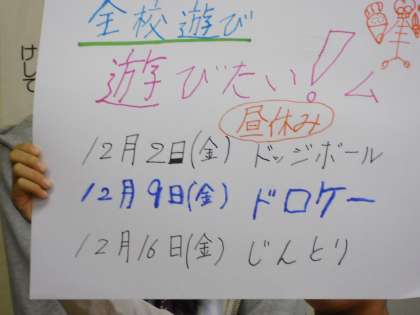 全校遊び
遊びたい!ム
昼休み
12月2日(金) ドッジボール
12月9日(金) ドロケー
12月16日(金) じんとり